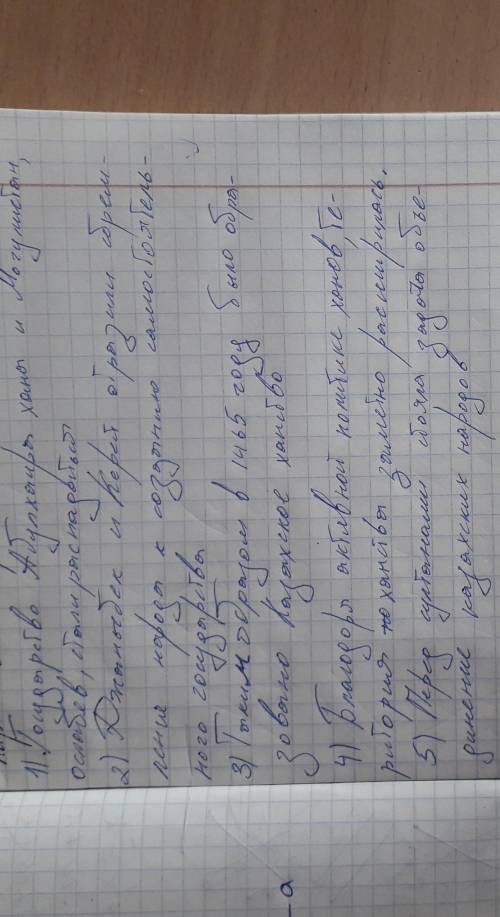 1) Государство Абулхаира хана и Могулистан,
ослабев, стали распадаться
2) Джаныбек и Керей отразили стрем-
ление народа к созданию самостоятель-
ного государства
3) Таким образом в 1465 году было обра-
зовано казахское ханство
4) Благодаря активной политике ханов, те-
ритория ханства заметно расширилась.
5) Перед султанами стояла задача объе-
динение казахских народов
а